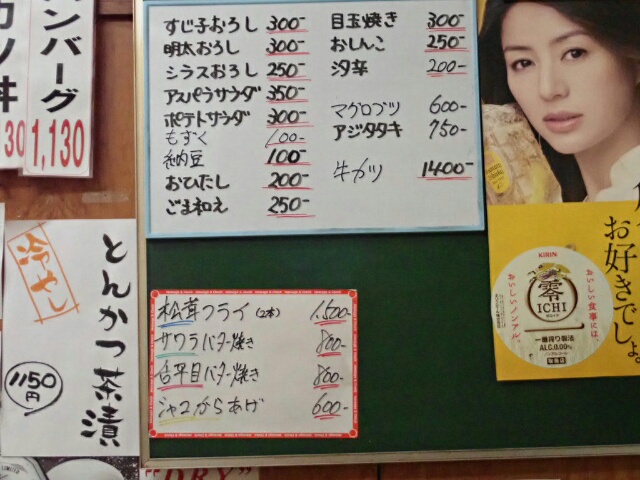 ハンバーグ
1,130
丼
30
すじ子おろし 300-
明太おろし 300-
シラスおろし 250-
アスパラサラダ 350-
ポテトサラダ 300-
もずく 100-
納豆 100-
おひたし 200-
ごま和え 250-
目玉焼き 300-
おしんこ 250-
汐辛 200-
マグロブツ 600-
アジタタキ 750-
牛カツ 1400-
冷やし
とんかつ茶漬
1150円
松茸フライ(2本) 1,500-
サワラバター焼き 800-
舌平目バター焼き 800-
シャコからあげ 600-
お好きでしょ。
KIRIN
零
ICHI
おいしい食事には、
おいしいノンアル。
一番搾り製法
ALC.0.00%
ノンアルコール
"DRY"